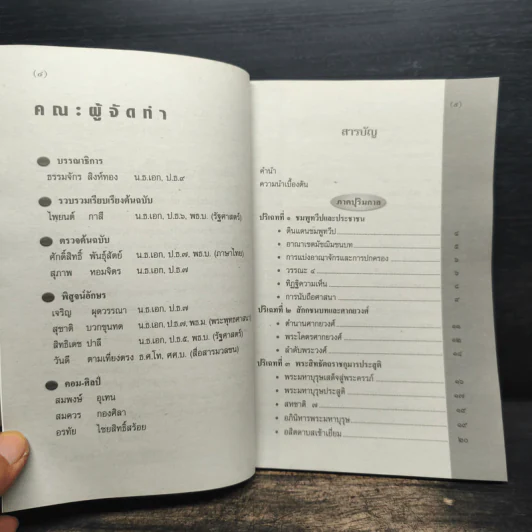 (๘)
คณะผู้จัดทำ
บรรณาธิการ
ธรรมจักร สิงห์ทอง น.ธ.เอก, ป.ธ.๙
รวบรวมเรียบเรียงต้นฉบับ
ไพยนต์ กาสี น.ธ.เอก, ป.ธ.๖, พธ.บ. (รัฐศาสตร์)
ตรวจต้นฉบับ
ศักดิ์สิทธิ์ พันธุ์สัตย์ น.ธ.เอก, ป.ธ.๗, พธ.บ. (ภาษาไทย)
สุภาพ หอมจิตร น.ธ.เอก, ป.ธ.๗
พิสูจน์อักษร
เจริญ ผุดวรรณา น.ธ.เอก, ป.ธ.๗
สุชาติ บวกขุนทด น.ธ.เอก, ป.ธ.๗, พธ.ม. (พระพุทธศาสนา)
สิทธิเดช ปาลี น.ธ.เอก, ป.ธ.๕, พธ.บ. (รัฐศาสตร์)
วันดี ตามเที่ยงตรง ธ.ศ.โท, ศศ.บ. (สื่อสารมวลชน)
คอม-ศิลป์
สมพงษ์ อุเทน
สมควร กองศิลา
อรทัย ไชยสิทธิ์สร้อย
(๙)
สารบัญ
คำนำ
ความนำเบื้องต้น
ภาคปุริมกาล
ปริเฉทที่ ๑ ชมพูทวีปและประชาชน
• ดินแดนชมพูทวีป
• อาณาเขตมัชฌิมชนบท
• การแบ่งอาณาจักรและการปกครอง
• วรรณะ ๔
• ทิฏฐิความเห็น
• การนับถือศาสนา ๙
ปริเฉทที่ ๒ สักกชนบทและศากยวงศ์
• ตำนานศากยวงศ์ ๑๑
• พระโคตรศากยวงศ์ ๑๒
• ลำดับพระวงศ์ ๑๔
ปริเฉทที่ ๓ พระสิทธัตถราชกุมารประสูติ
• พระมหาบุรุษเสด็จสู่พระครรภ์ ๑๖
• พระมหาบุรุษประสูติ ๑๗
• สหชาติ ๗ ๑๙
• อภินิหารพระมหาบุรุษ ๑๙
• อสิตดาบสเข้าเยี่ยม ๒๐